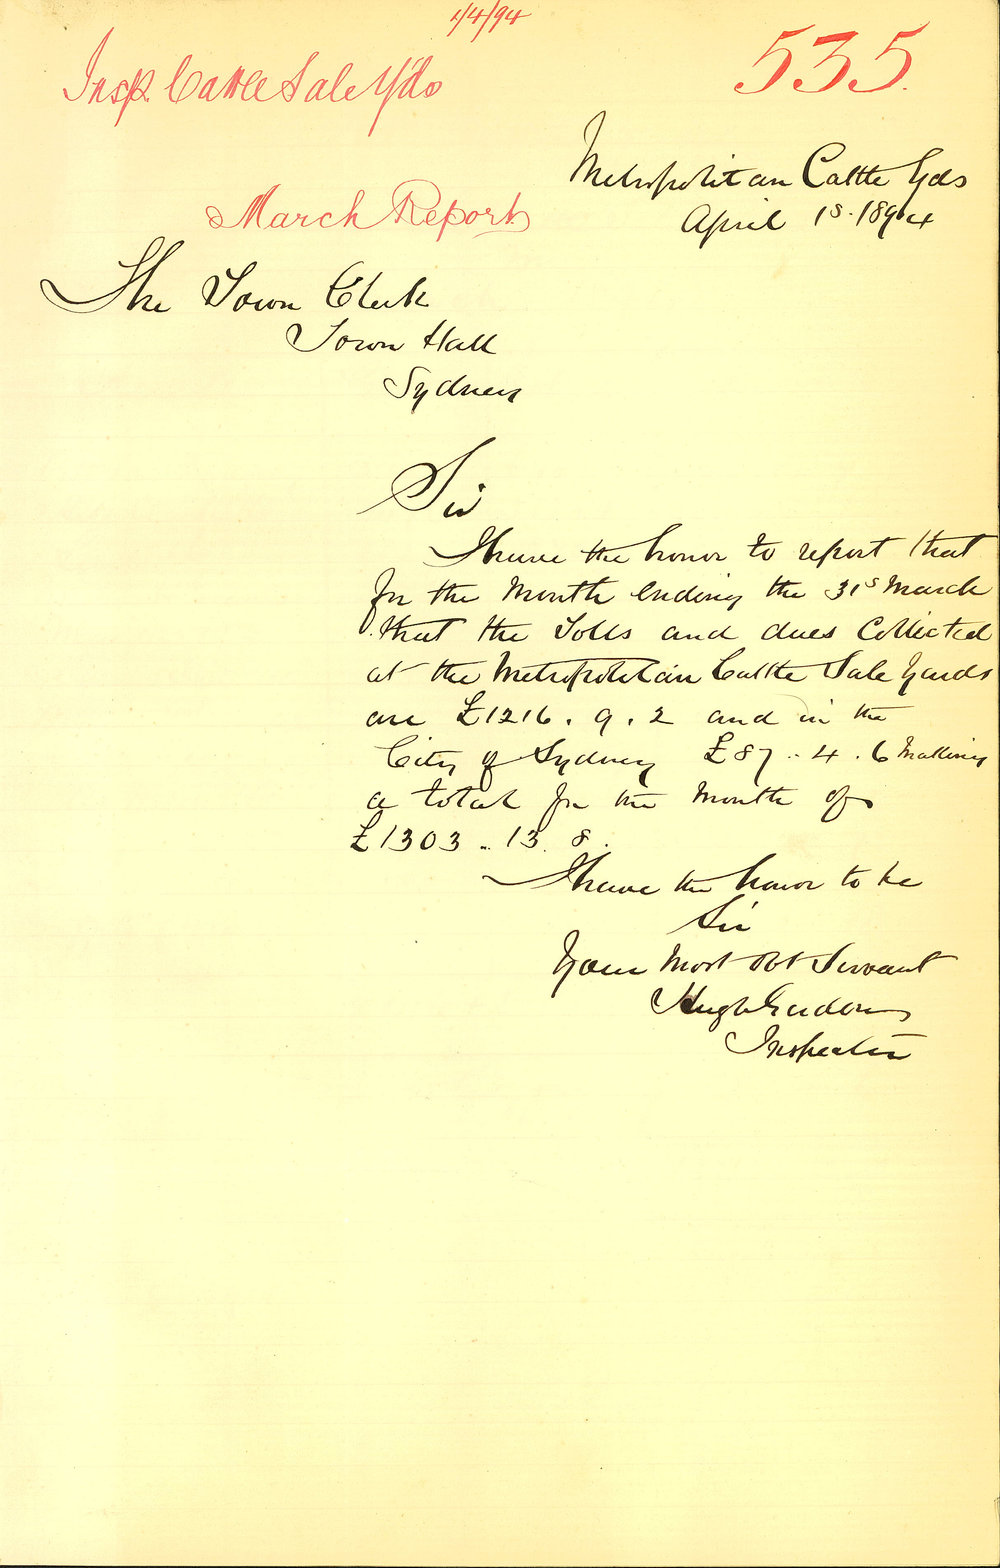 1/4/94
535.
Insp. Cattle Sale Yds
Metropolitan Cattle Yds
April 1s. 1894
March Report
The Town Clerk
Town Hall
Sydney
Sir
I have the honor to report that
for the Month Ending the 31s March
that the Tolls and dues Collected
at the Metropolitan Cattle Sale Yards
are £1216. 9. 2 and in the
City of Sydney £87 .. 4 . 6 Making
a total for the Month of
£1303 .. 13. 8.
I have the honor to be
Sir
Your Most Obt Servant
Hugh
Inspector